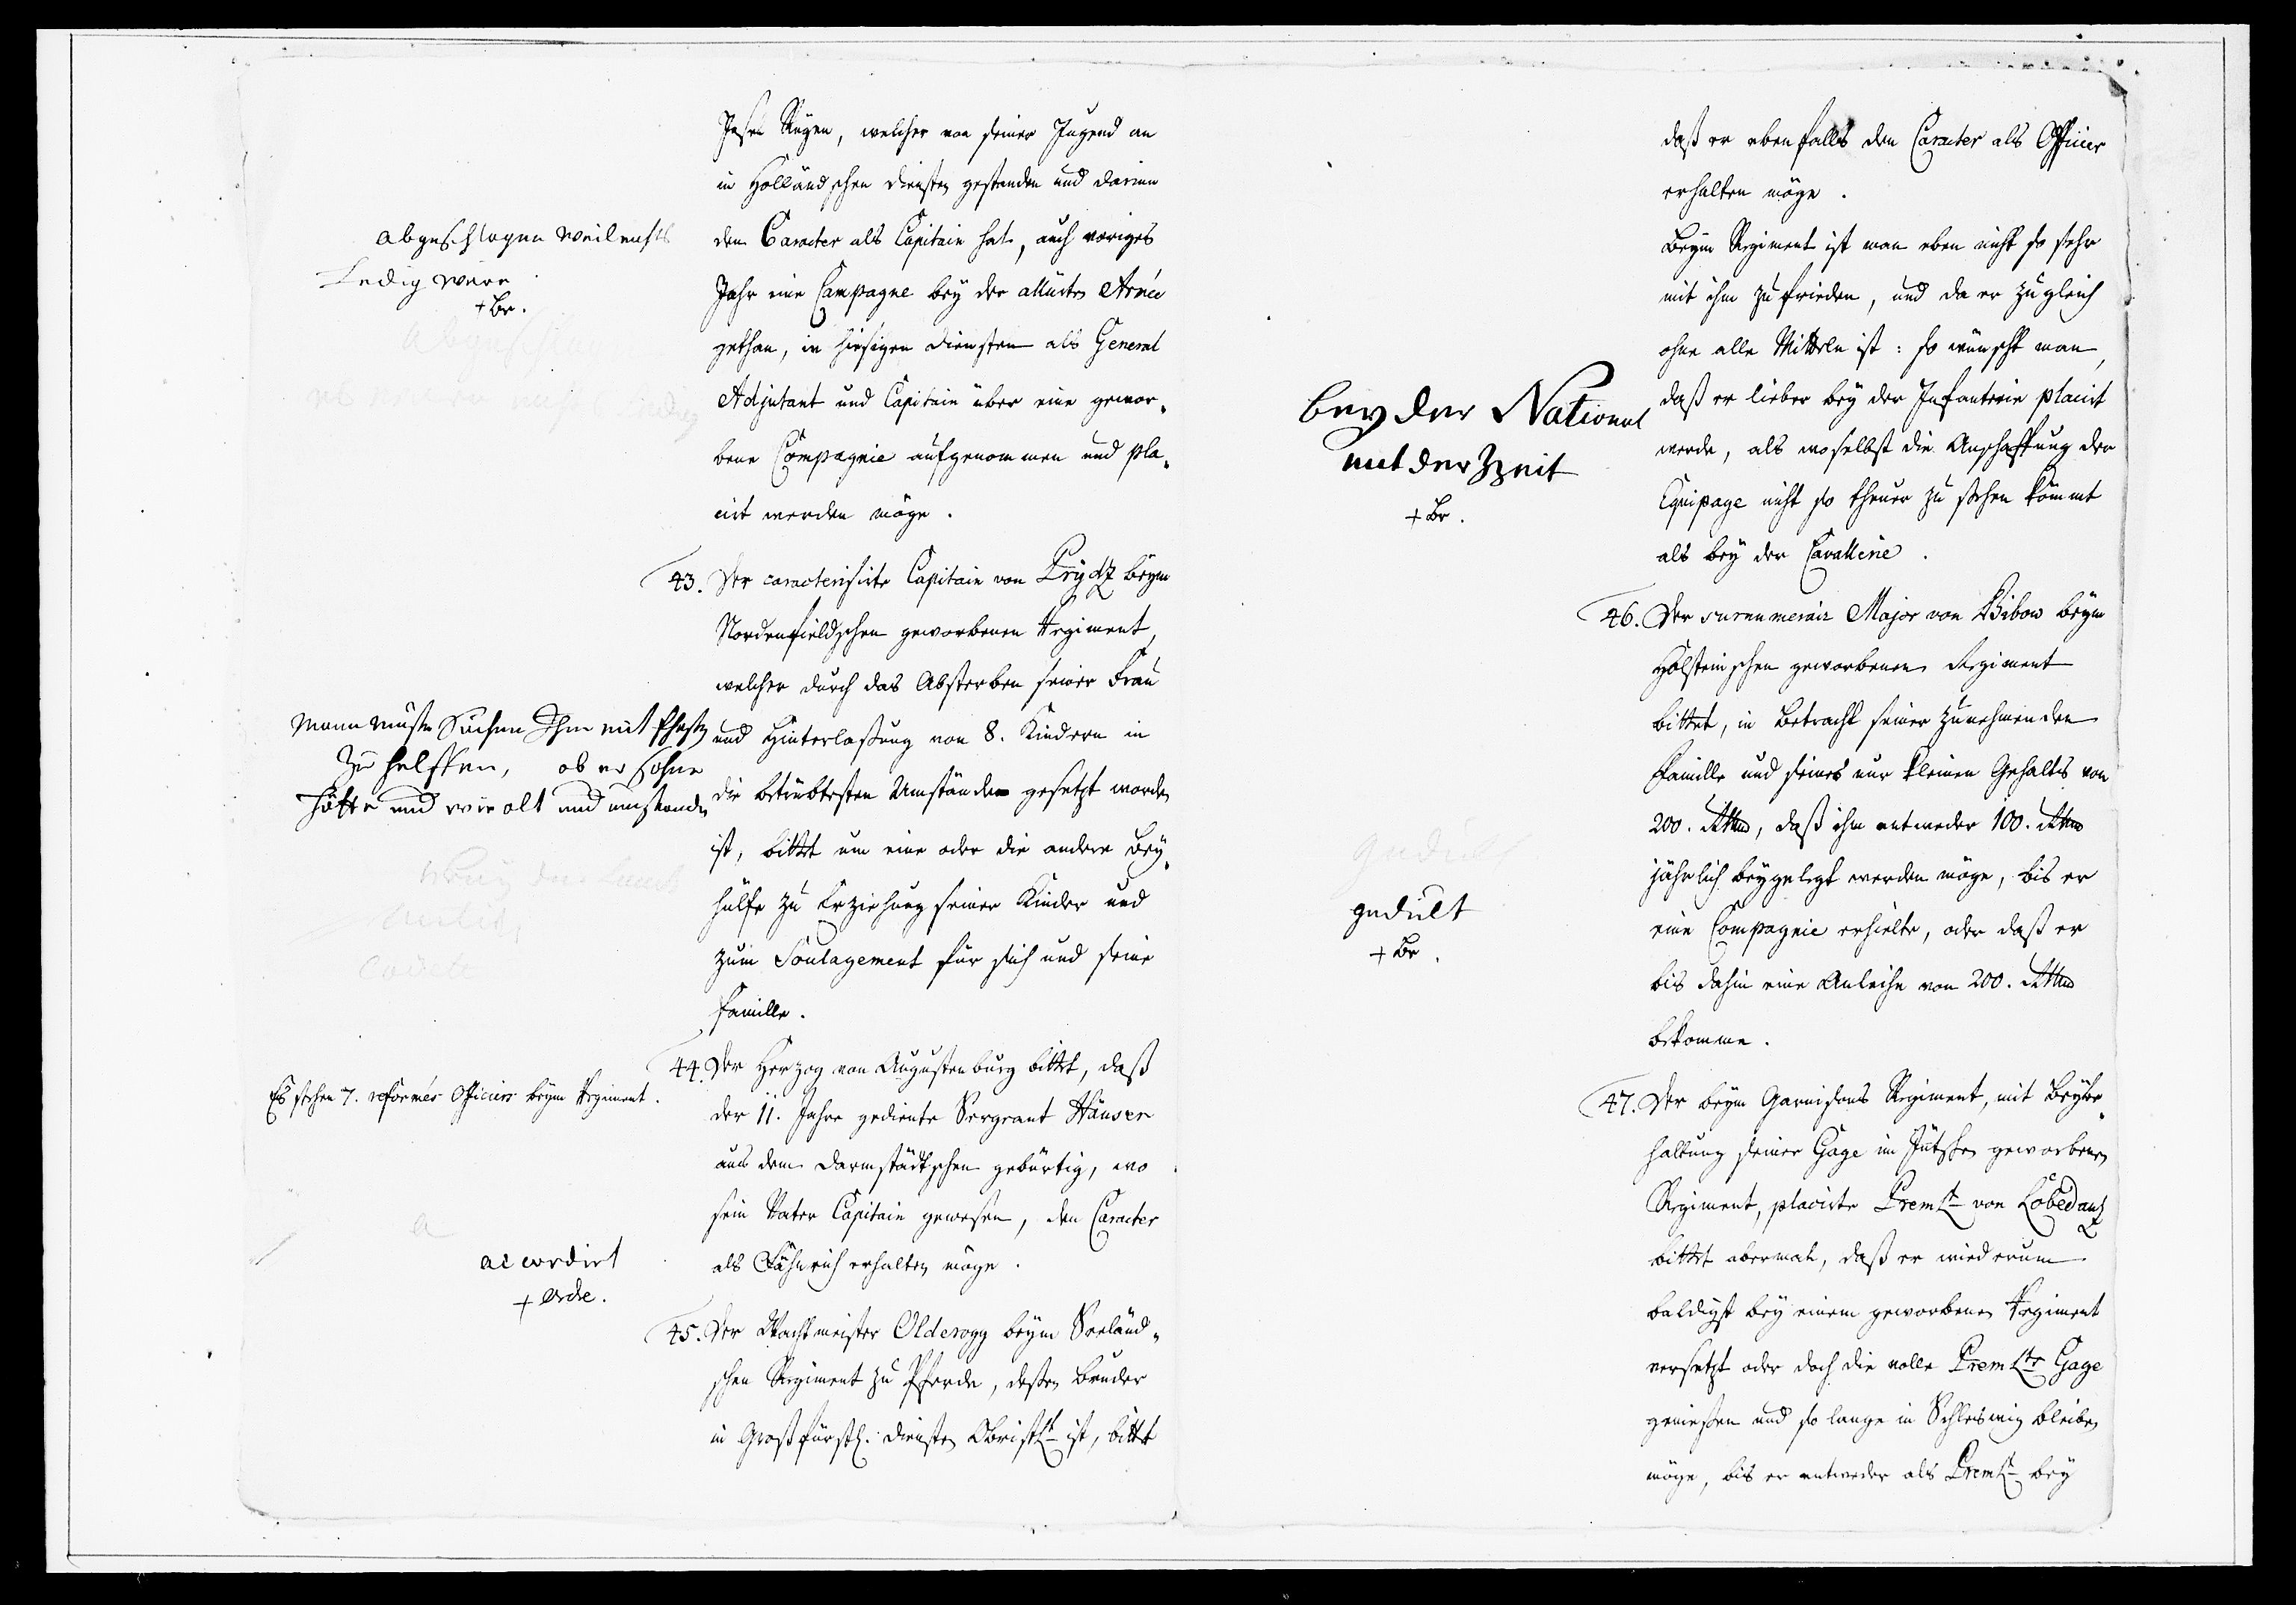 Insel Rügen, welcher von seiner Jugend an
in Holländschen Diensten gestanden und darinn
den Caracter als Capitain hat, auch voriges
Jahr eine Campagne bey der alliirten Armée
gethan, in hiesigen Diensten als General
Adjutant und Capitain über eine gewor-
bene Compagnie aufgenommen und pla-
cirt werden möge.
abgeschlagen weil nichts
Ledig were
+ Br.
43. Der caracterisirte Capitain von Prydz beym
Nordenfieldschen geworbenen Regiment,
welcher durch das Absterben seiner Frau
und Hinterlaßung von 8. Kindern in
die betrübtesten Umständen gesetzt worden
ist, bittet um eine oder die andere Bey-
hülfe zu Erziehung seiner Kinder und
zum Soulagement für sich und seine
Famille.
Mann müste Suchen Ihm mit
zu helffen, ob er sohne
hätte und wie alt und umstenden
44. Der Herzog von Augustenburg bittet, daß
der 11. Jahre gediente Sergeant Häuser
aus dem Darmstädtschen gebürtig, wo
sein Vater Capitain gewesen, den Caracter
als Fähnrich erhalten möge.
Es stehen 7. reformés Officiers beym Regiment.
accordirt
+ Orde.
45. Der Wachtmeister Olderogg beym Seeländ-
schen Regiment zu Pferde, deßen Bruder
in Großfürstl. Diensten Obristlt ist, bittet
daß er ebenfalls den Caracter als Officier
erhalten möge.
Beym Regiment ist man eben nicht so sehr
mit ihm zufrieden, und da er zugleich
ohne alle Mitteln ist: so wünscht man,
daß er lieber bey der Infanterie placirt
werde, als woselbst die Anschaffung der
Equipage nicht so theuer zu stehen kömmt
als bey der Cavallerie.
bey der National
mit der Zeit
+ Br.
46. Der surnumerair Major von Bibow beym
Holsteinschen geworbenen Regiment
bittet, in Betracht seiner zunehmenden
Famille und seines nur kleinen Gehalts von
200. Rthlr, daß ihm entweder 100. Rthlr
jährlich beygelegt werden möge, bis er
eine Compagnie erhielte, oder daß er
bis dahin eine Anleihe von 200. Rthlr
bekomme.
gedult
+ Br.
47. Der beym Garnisons Regiment, mit Beybe-
haltung seiner Gage im Jütschen geworbenen
Regiment, placirte Premlt von Lobedanz
bittet abermal, daß er wiederum
baldigst bey einem geworbenen Regiment
versetzt oder doch die volle Premltr Gage
genießen und so lange in Schleswig bleiben
möge, bis er entweder als Premlt bey